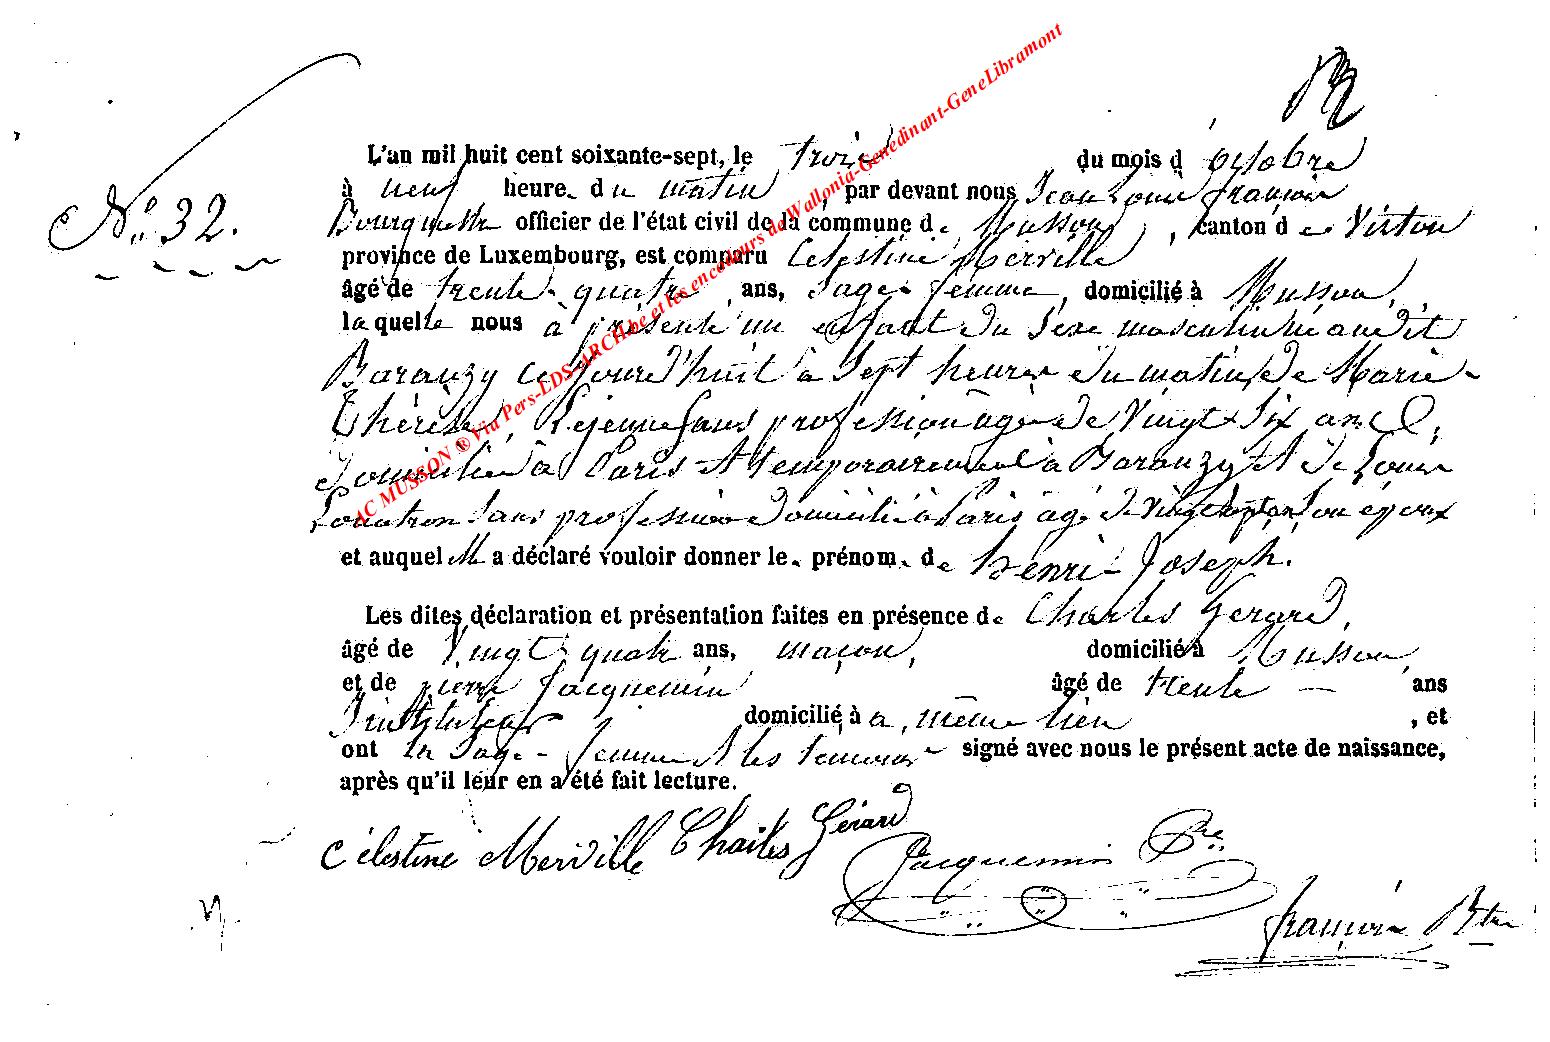 L'an mil huit cent soixante-sept, le trois du mois d'octobre
à neuf heure. du matin, par devant nous Jean Louis françois
N° 32.
Bourguelle officier de l'état civil de la commune de Musson, canton de Virton
province de Luxembourg, est comparu Célestine Merville
âgé de trente-quatre ans, Sage-femme, domicilié à Musson,
laquelle nous à présenté un enfant du Sexe masculin né audit
Baranzy cejourd'huit à Sept heures du matin, de Marie
Thérèse Lejeune Sans profession agée de Vingt Six ans
domiciliée à Paris et temporairement à Baranzy et de Louis
Sans profession domicilié à Paris âgé de vingt sept ans Son époux
et auquel elle a déclaré vouloir donner le. prénom. de henri-Joseph.
Les dites déclaration et présentation faites en présence de Charles Gerard,
âgé de Vingt quatre ans, maçon, domicilié à Musson,
et de pierre Jacquemin âgé de trente — ans
Instituteur domicilié à a même lieu, et
ont la Sage-femme et les temoins signé avec nous le présent acte de naissance,
après qu'il leur en a été fait lecture.
Célestine Merville Charles Gérard
Jacquemin Pre
françois Btre
AC MUSSON ® Via Pers-EDS-ARCH.be et les encodeurs de Wallonia-Genedinant-GeneLibramont